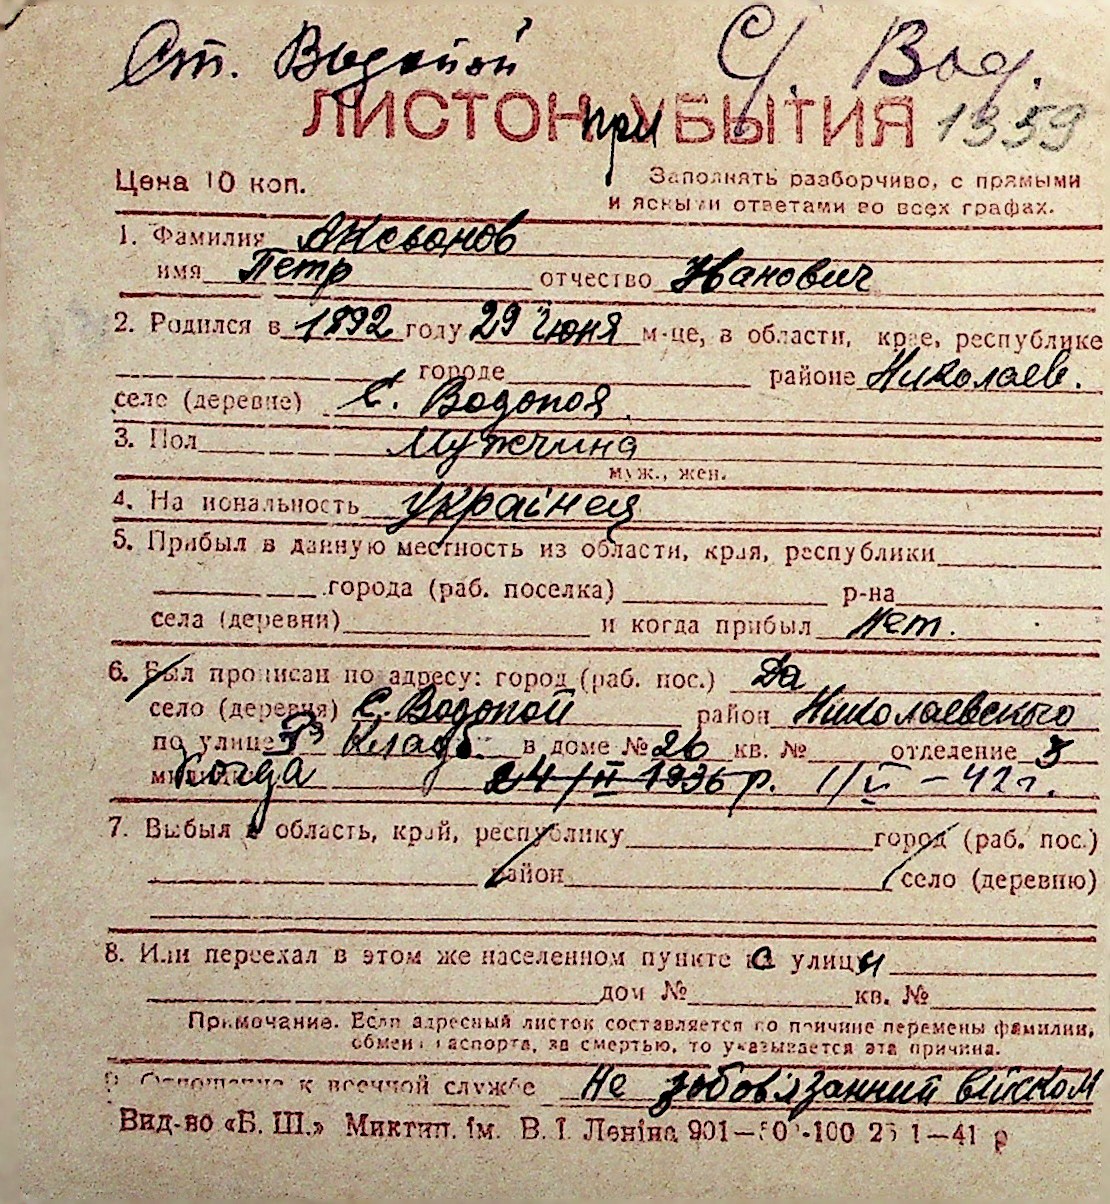 Ст. Водопой С/ Вод.
ЛИСТОК при УБЫТИЯ 1359
Цена 10 коп. Заполнять разборчиво, с прямыми
и ясными ответами во всех графах.
1. Фамилия Аксьонов
имя Петр отчество Иванович
2. Родился в 1892 году 29 июня м-це, в области, крае, республике
городе районе Николаев.
село (деревне) С. Водопоя
3. Пол Мужчина
муж., жен.
4. Национальность украінец
5. Прибыл в данную местность из области, края, республики
города (раб. поселка) р-на
села (деревни) и когда прибыл Нет.
6. Был прописан по адресу: город (раб. пос.) Да
село (деревня) С. Водопой район Николаевского
по улице в доме № 26 кв. № отделение 3
Когда 24/II 1936 р. 1/V – 42 г.
7. Выбыл в область, край, республику город (раб. пос.)
район село (деревню)
8. Или переехал в этом же населенном пункте с улицы
дом № кв. №
Примечание. Если адресный листок составляется по причине перемены фамилии,
обмена паспорта, за смертью, то указывается эта причина.
9. Отношение к военной службе Не зобов'язанний військом
Вид-во «Б. Ш.» Миктип. ім. В. І. Леніна 901 1—41 р